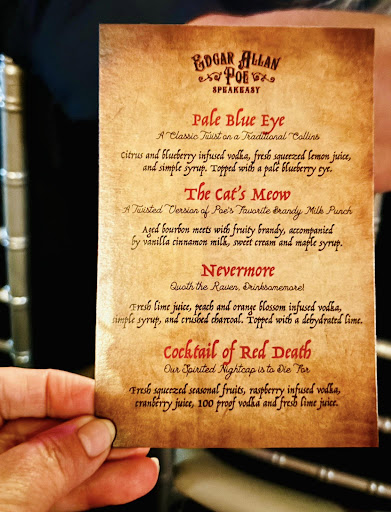 Edgar Allan
Poe
Speakeasy
Pale Blue Eye
A Classic Twist on a Traditional Collins
Citrus and blueberry infused vodka, fresh squeezed lemon juice,
and simple syrup. Topped with a pale blueberry eye.
The Cat's Meow
A Twisted Version of Poe's Favorite Brandy Milk Punch
Aged bourbon meets with fruity brandy, accompanied
by vanilla cinnamon milk, sweet cream and maple syrup.
Nevermore
Quoth the Raven, Drinksomemore!
Fresh lime juice, peach and orange blossom infused vodka,
simple syrup, and crushed charcoal. Topped with a dehydrated lime.
Cocktail of Red Death
Our Spirited Nightcap is to Die For
Fresh squeezed seasonal fruits, raspberry infused vodka,
cranberry juice, 100 proof vodka and fresh lime juice.